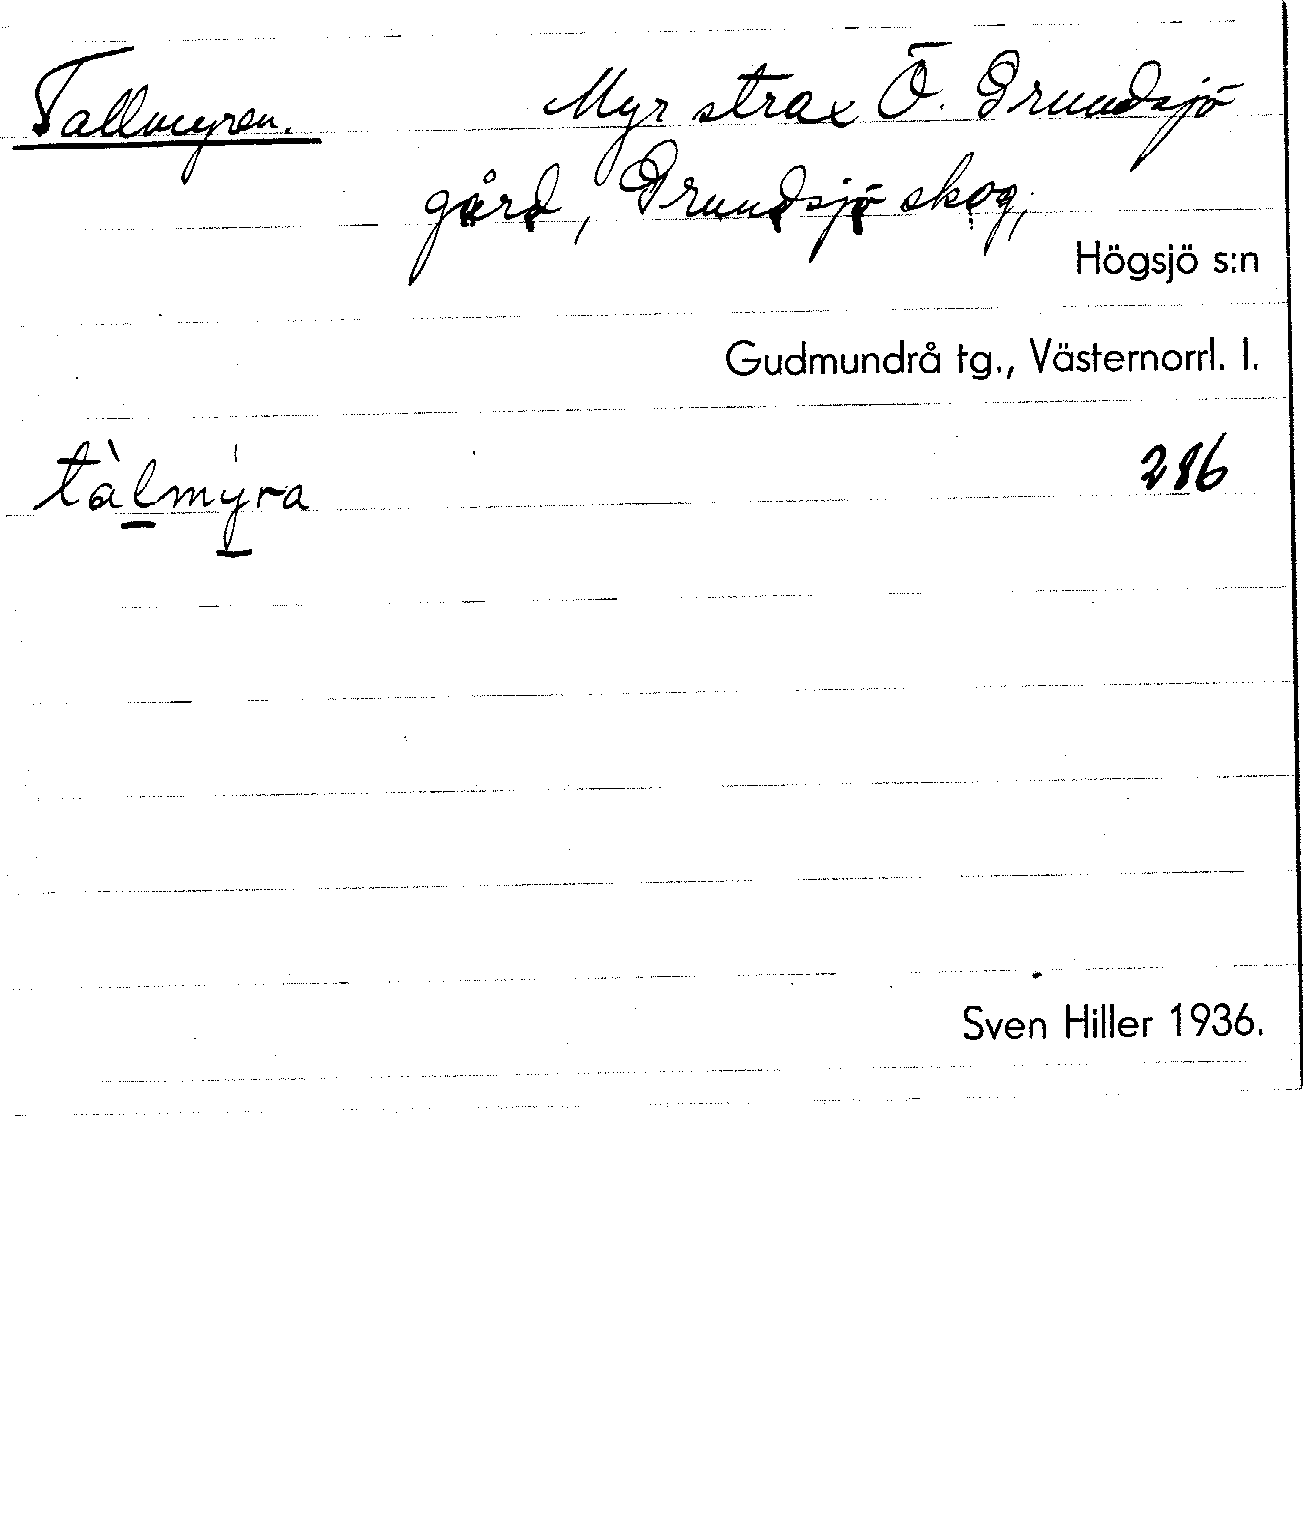 Tallmyren. Myr strax Ö. Grundsjö
gård, Grundsjö skog,
Högsjö s:n
Gudmundrå tg., Västernorrl. l.
tàlmýra 286
Sven Hiller 1936.